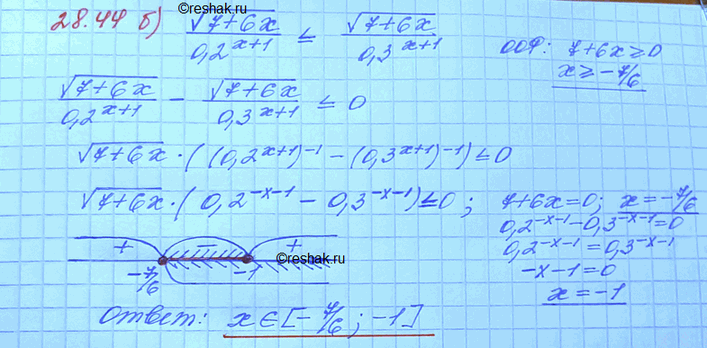 ©reshak.ru
28.44 б) √(7+6x) / 0,2^(x+1) ≤ √(7+6x) / 0,3^(x+1)
ООФ: 7+6x ≥ 0
x ≥ -7/6
√(7+6x) / 0,2^(x+1) - √(7+6x) / 0,3^(x+1) ≤ 0
√(7+6x) · ((0,2^(x+1))^(-1) - (0,3^(x+1))^(-1)) ≤ 0
√(7+6x) · (0,2^(-x-1) - 0,3^(-x-1)) ≤ 0; 7+6x=0; x=-7/6
0,2^(-x-1) - 0,3^(-x-1) = 0
0,2^(-x-1) = 0,3^(-x-1)
-x-1=0
x=-1
+ - +
-7/6 -1
©reshak.ru
Ответ: x∈[-7/6; -1]